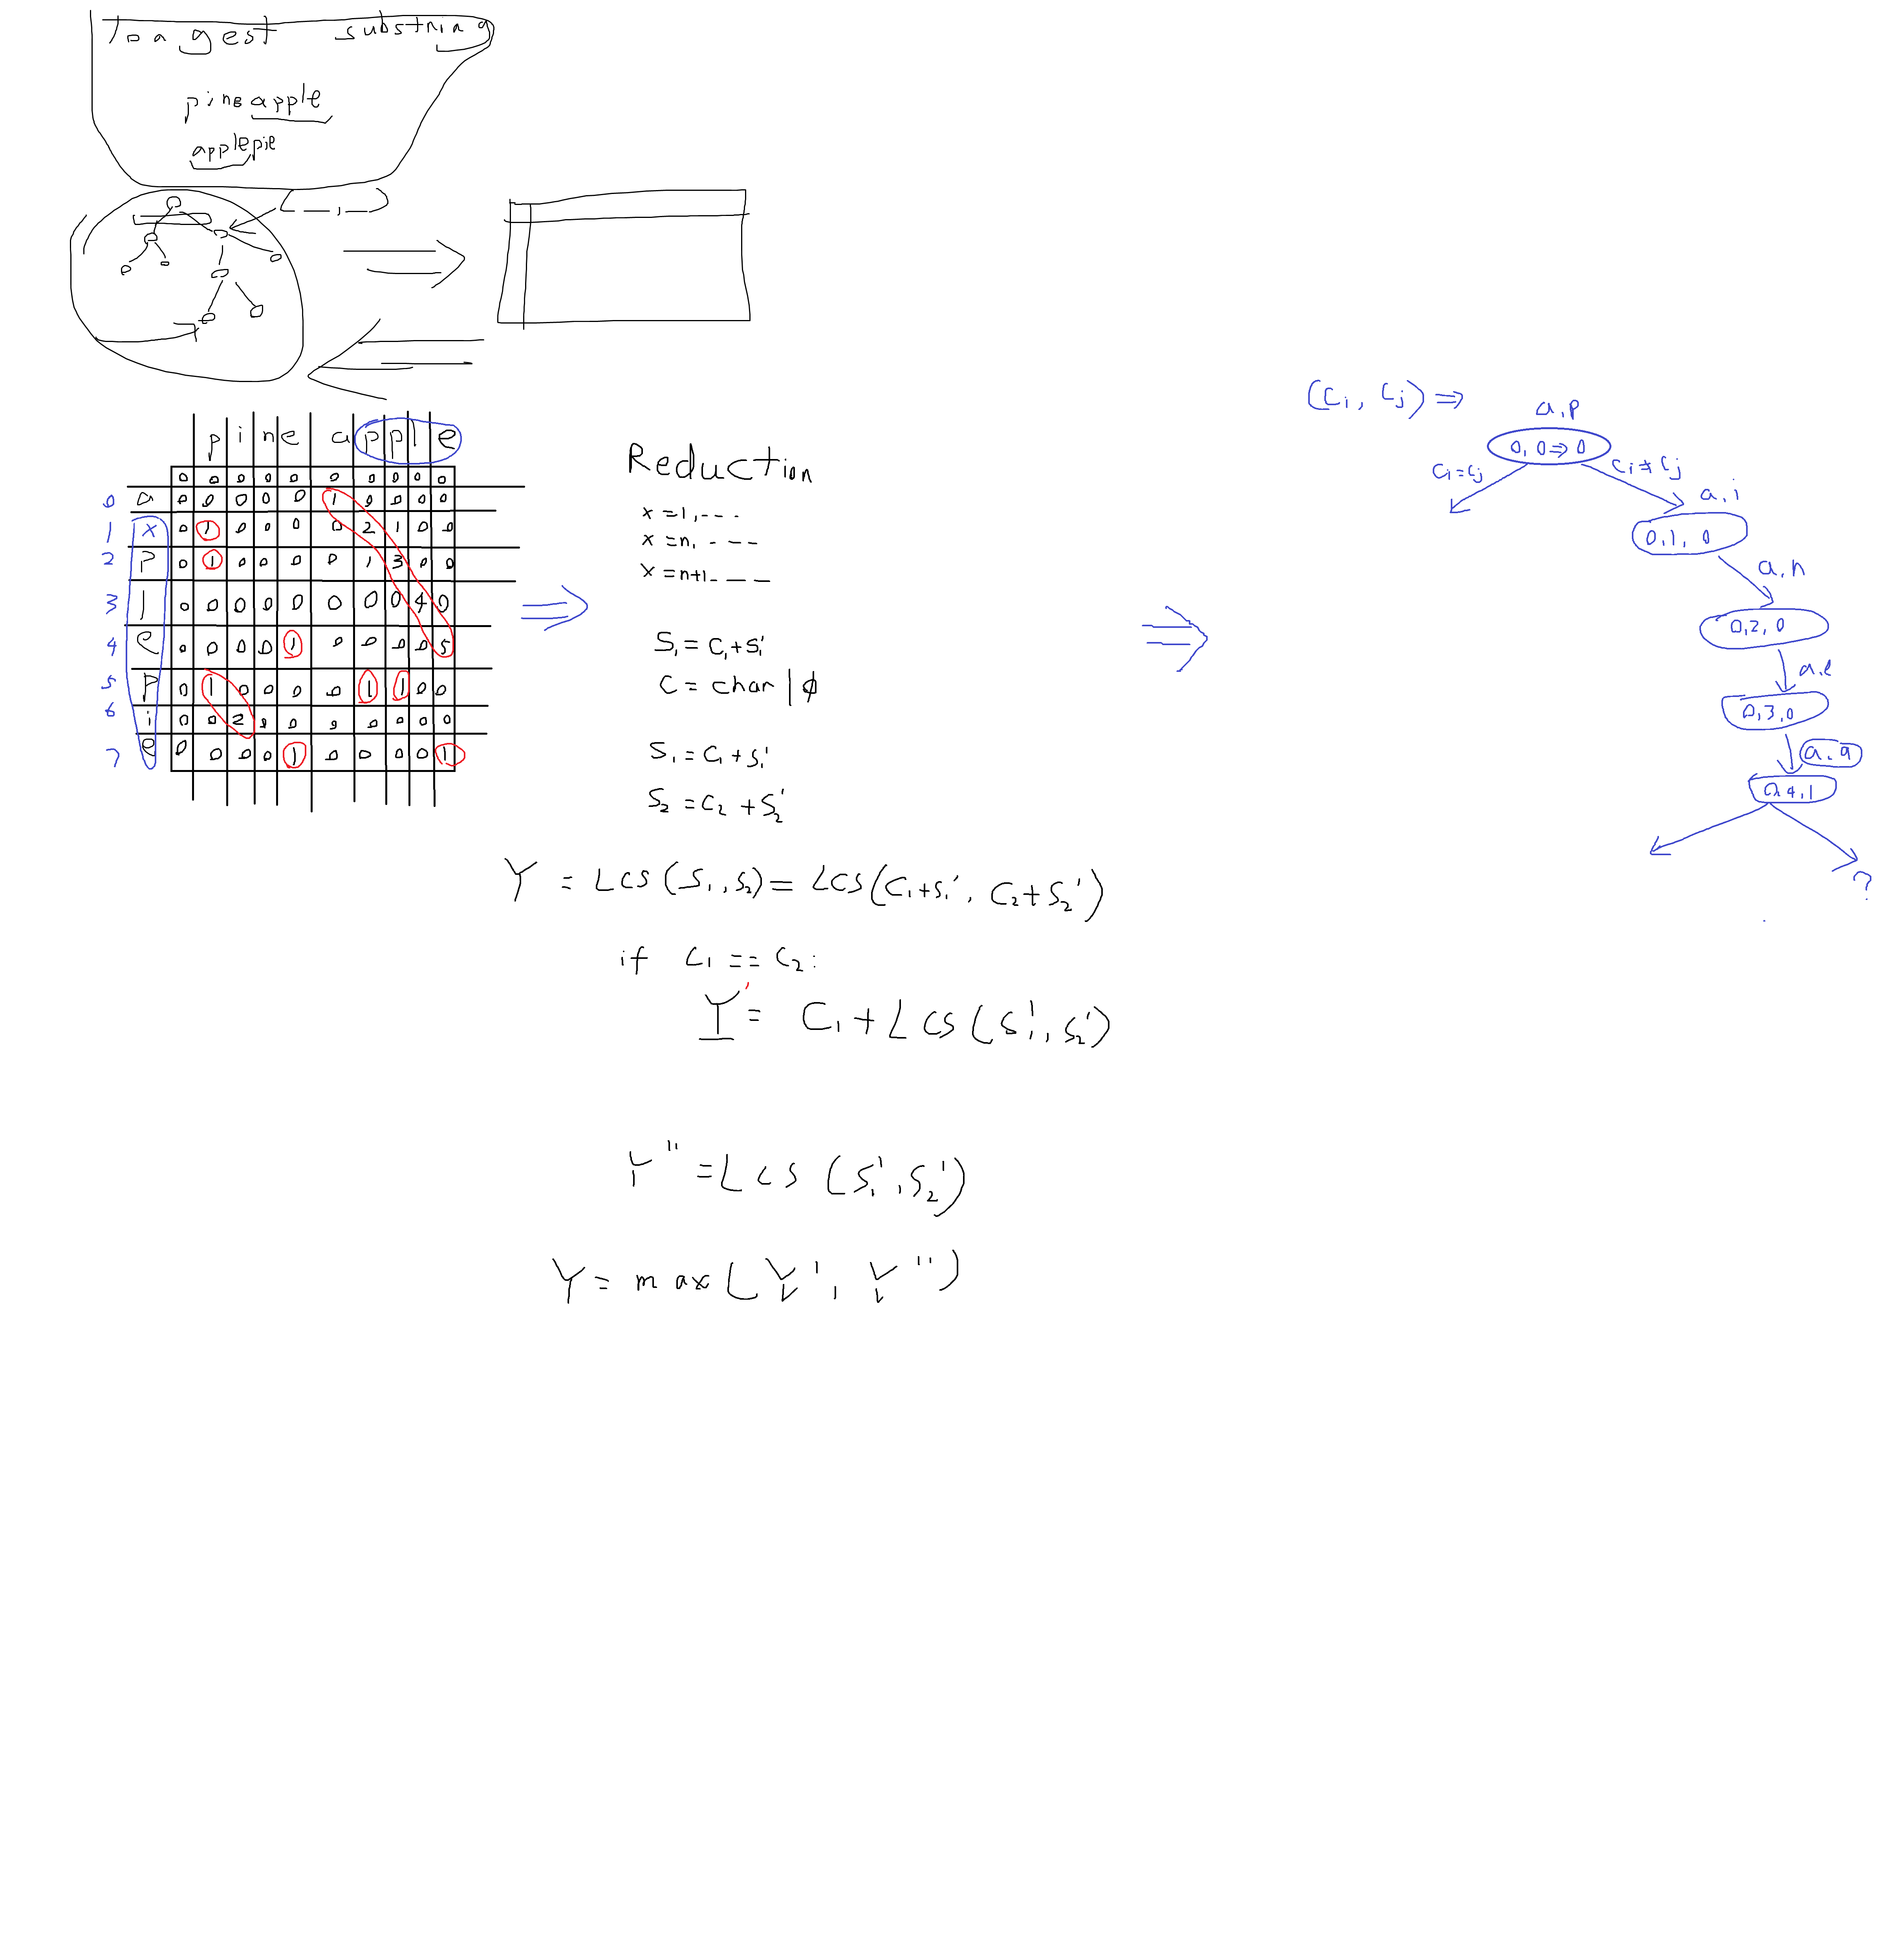 longest substring
pineapple
applepie
p i n e a p p l e
0 0 0 0 0 0 0 0 0 0
0 a 0 0 0 0 0 1 0 0 0 0
1 x 0 1 0 0 0 0 2 1 0 0
2 p 0 1 0 0 0 0 1 3 0 0
3 l 0 0 0 0 0 0 0 0 4 0
4 e 0 0 0 0 1 0 0 0 0 5
5 p 0 1 0 0 0 0 1 1 0 0
6 i 0 0 2 0 0 0 0 0 0 0
7 e 0 0 0 0 1 0 0 0 0 1
Reduction
x = 1, - - -
x = n, - - -
x = n+1 - - -
S₁ = C₁ + S₁'
C = char | ϕ
S₁ = C₁ + S₁'
S₂ = C₂ + S₂'
Y = LCS (S₁, S₂) = LCS (C₁+S₁', C₂+S₂')
if C₁ == C₂:
Y' = C₁ + LCS (S₁', S₂')
Y'' = LCS (S₁', S₂')
Y = max (Y', Y'')
(Ci, Cj) ⇒
a, p
0, 0 ⇒ 0
Ci = Cj
Ci ≠ Cj
a, i
0, 1, 0
a, n
0, 2, 0
a, e
0, 3, 0
a, a
0, 4, 1
?